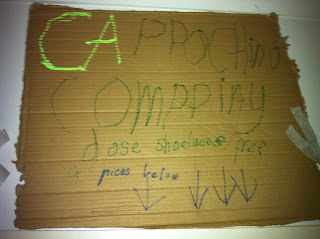 CAPPOCHino
COMPPiny
dose shoelaces free
pices below